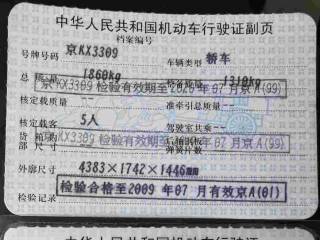 中华人民共和国机动车行驶证副页
档案编号
号牌号码 京KX3309 车辆类型 轿车
总质量 1860kg 1310kg
京KX3309 检验有效期至2020年07月京A(99)
核定载质量 -- 准牵引总质量 --
核定载客 5人 驾驶室共乘 --
KX3309 检验有效期至 年07月京A(99)
货箱内部尺寸 后轴钢板弹簧片数
外廓尺寸 4383×1742×1446
检验记录 检验合格至2009年07月有效京A(01)
中华人民共和国机动车行驶证副页